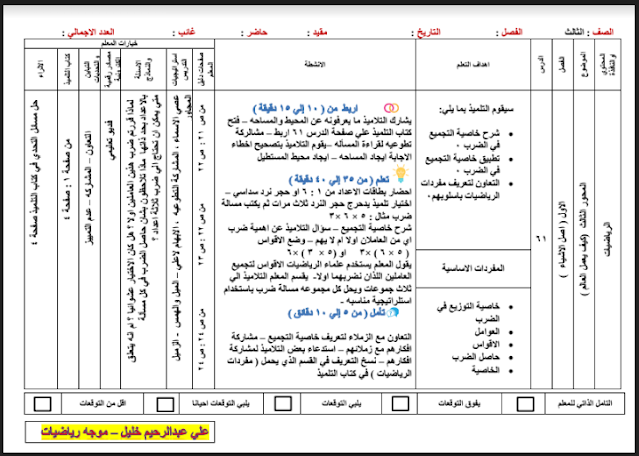 الصف : الثالث الفصل : التاريخ : مقيد : حاضر : غائب : العدد الاجمالي :
المحتوي او النافذة
الموضوع
الفصل
الدرس
اهداف التعلم
الانشطة
خيارات المعلم
صفحات دليل المعلم
استراتيجيات التدريس
الاسئلة والنماذج
مصادر رقمية
كتاب التلميذ
الاثراء
الرياضيات
المحور الثالث (كيف يعمل العالم )
الاول ( اصل الاشياء )
سيقوم التلميذ بما يلي:
شرح خاصية التجميع في الضرب .
تطبيق خاصية التجميع في الضرب .
التعاون لتعريف مفردات الرياضيات باسلوبهم.
المفردات الاساسية
خاصية التوزيع في الضرب
العوامل
الاقواس
حاصل الضرب
الخاصية
اربط من ( ١٠ إلي ١٥ دقيقة )
يشارك التلاميذ ما يعرفونه عن المحيط والمساحه – فتح
كتاب التلميذ علي صفحة الدرس ٦١ اربط – مشاركة
تطوعيه لقراءة المسأله – يقوم التلاميذ بتصحيح اخطاء
الاجابة ايجاد المساحه – ايجاد محيط المستطيل
تعلم ( من ٣٥ إلي ٤٠ دقيقة )
احضار بطاقات الاعداد من ١ : ٦ او حجر نرد سداسي –
اختيار تلميذ يدحرج حجر النرد ثلاث مرات ثم يكتب مسالة
ضرب مثال : ٥ × ٦ × ٣
شرح خاصية التجميع – سؤال التلاميذ عن اهمية ضرب
اي من العاملان اولا ام لا يهم – وضع الاقواس
( ٥ × ٦ ) ×٣ او ( ٥ × ٣ ) ×٦
يقول المعلم يستخدم علماء الرياضيات الاقواس لتجميع
العاملين اللذان نضربهما اولا- يقسم المعلم التلاميذ الي
ثلاث جموعات ويحل كل مجموعه مسالة ضرب باستخدام
استراتيجية مناسبه -
تأمل ( من ٥ إلي ١٠ دقائق )
التعاون مع الزملاء لتعريف خاصية التجميع – مشاركة
افكارهم مع زملانهم – استدعاء بعض التلاميذ لمشاركة
افكارهم – نسخ التعريف في القسم الذي يحمل ( مفردات
الرياضيات ) في كتاب التلميذ
من ص ٢١ : ص ٢٢
من ص ٢٢ : ص ٢٣
من ص ٢٤ : ص ٢٤
عصي الاسماء ، المشاركة التطوعيه ، الابهام لاعلي – الميل والهمس – الزميل المجاور
متي يمكن ان نحتاج الي ضرب ثلاثة اعداد ؟
فديو تعليمي
التعاون – المشاركه – عدم التمييز
من صفحة ١ : صفحة ٤
حل مسائل التحدي في كتاب التلميذ صفحة ٤
التامل الذاتي للمعلم يفوق التوقعات يلبي التوقعات يلبي التوقعات احيانا اقل من التوقعات
علي عبدالرحيم خليل – موجه رياضيات